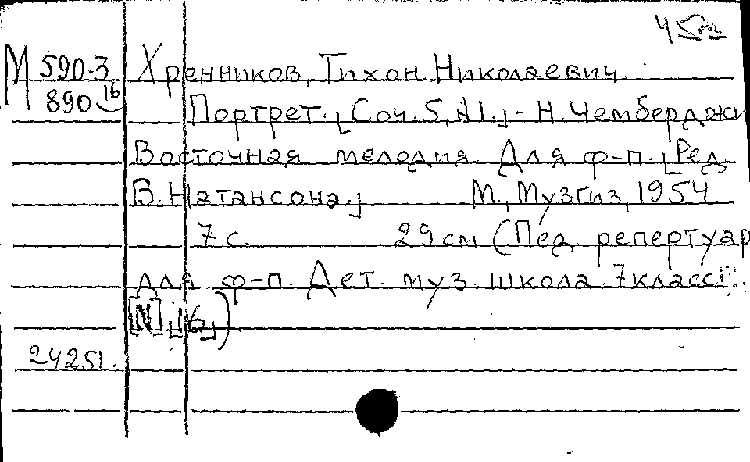 М 590-3 Хренников, Тихон Николаевич.
890 16 Портрет. [Соч. 5, №1.] - Н. Чемберджи
Восточная мелодия. Для ф-п. [Ред.
В. Натансона.] М., Музгиз, 1954
7 с. 29 см (Пед. репертуар
для ф-п. Дет. муз. школа. 7 класс).
[N] [6])
24251.